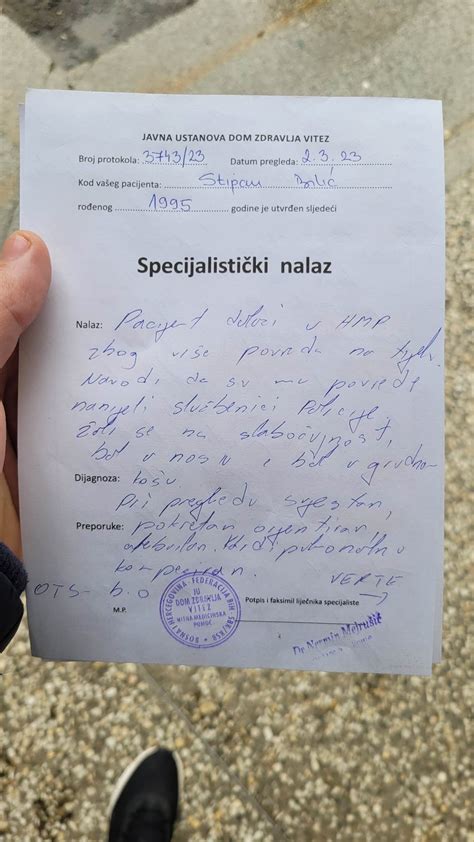 JAVNA USTANOVA DOM ZDRAVLJA VITEZ
Broj protokola: 3743/23 Datum pregleda: 2.3.23
Kod vašeg pacijenta: Stipan
rođenog 1995 godine je utvrđen sljedeći
Specijalistički nalaz
Nalaz: Pacijent dolazi u HMP
zbog više povreda na tijelu.
Navodi da su mu povrede
nanijeli službenici Policije,
žali se na
bol u nosu i bol u grudno-
Dijagnoza: košu
Pri pregledu svjestan,
Preporuke: pokretan, orjentiran,
afebrilan. Kardiopulmonalno
kompenziran.
OTS- b.o VERTE
BOSNA I HERCEGOVINA - FEDERACIJA BIH
JU
DOM ZDRAVLJA
VITEZ
HITNA MEDICINSKA
POMOĆ
M.P. Potpis i faksimil liječnika specijaliste
Dr Nermin Mejrušić